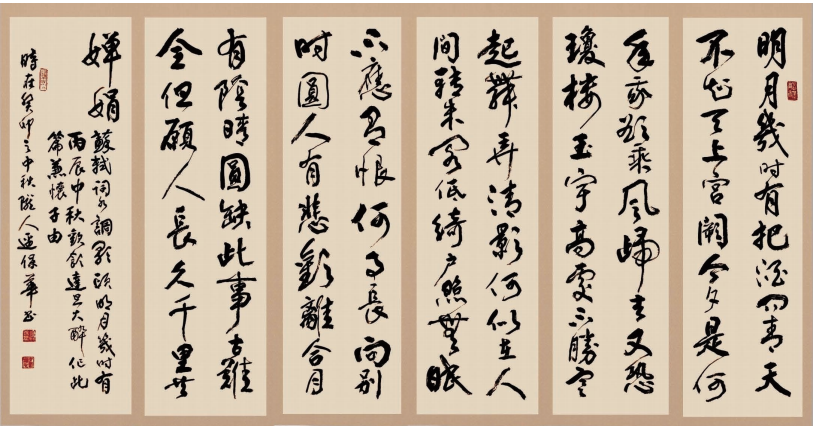 明月幾時有把酒問青天
不知天上宮闕今夕是何
年我欲乘風歸去又恐
瓊樓玉宇高處不勝寒
起舞弄清影何似在人
間轉朱閣低綺戶照無眠
不應有恨何事長向別
時圓人有悲歡離合月
有陰晴圓缺此事古難
全但願人長久千里共
嬋娟
蘇軾詞水調歌頭明月幾時有
丙辰中秋歡飲達旦大醉作此
篇兼懷子由
時在癸卯之中秋人保華書